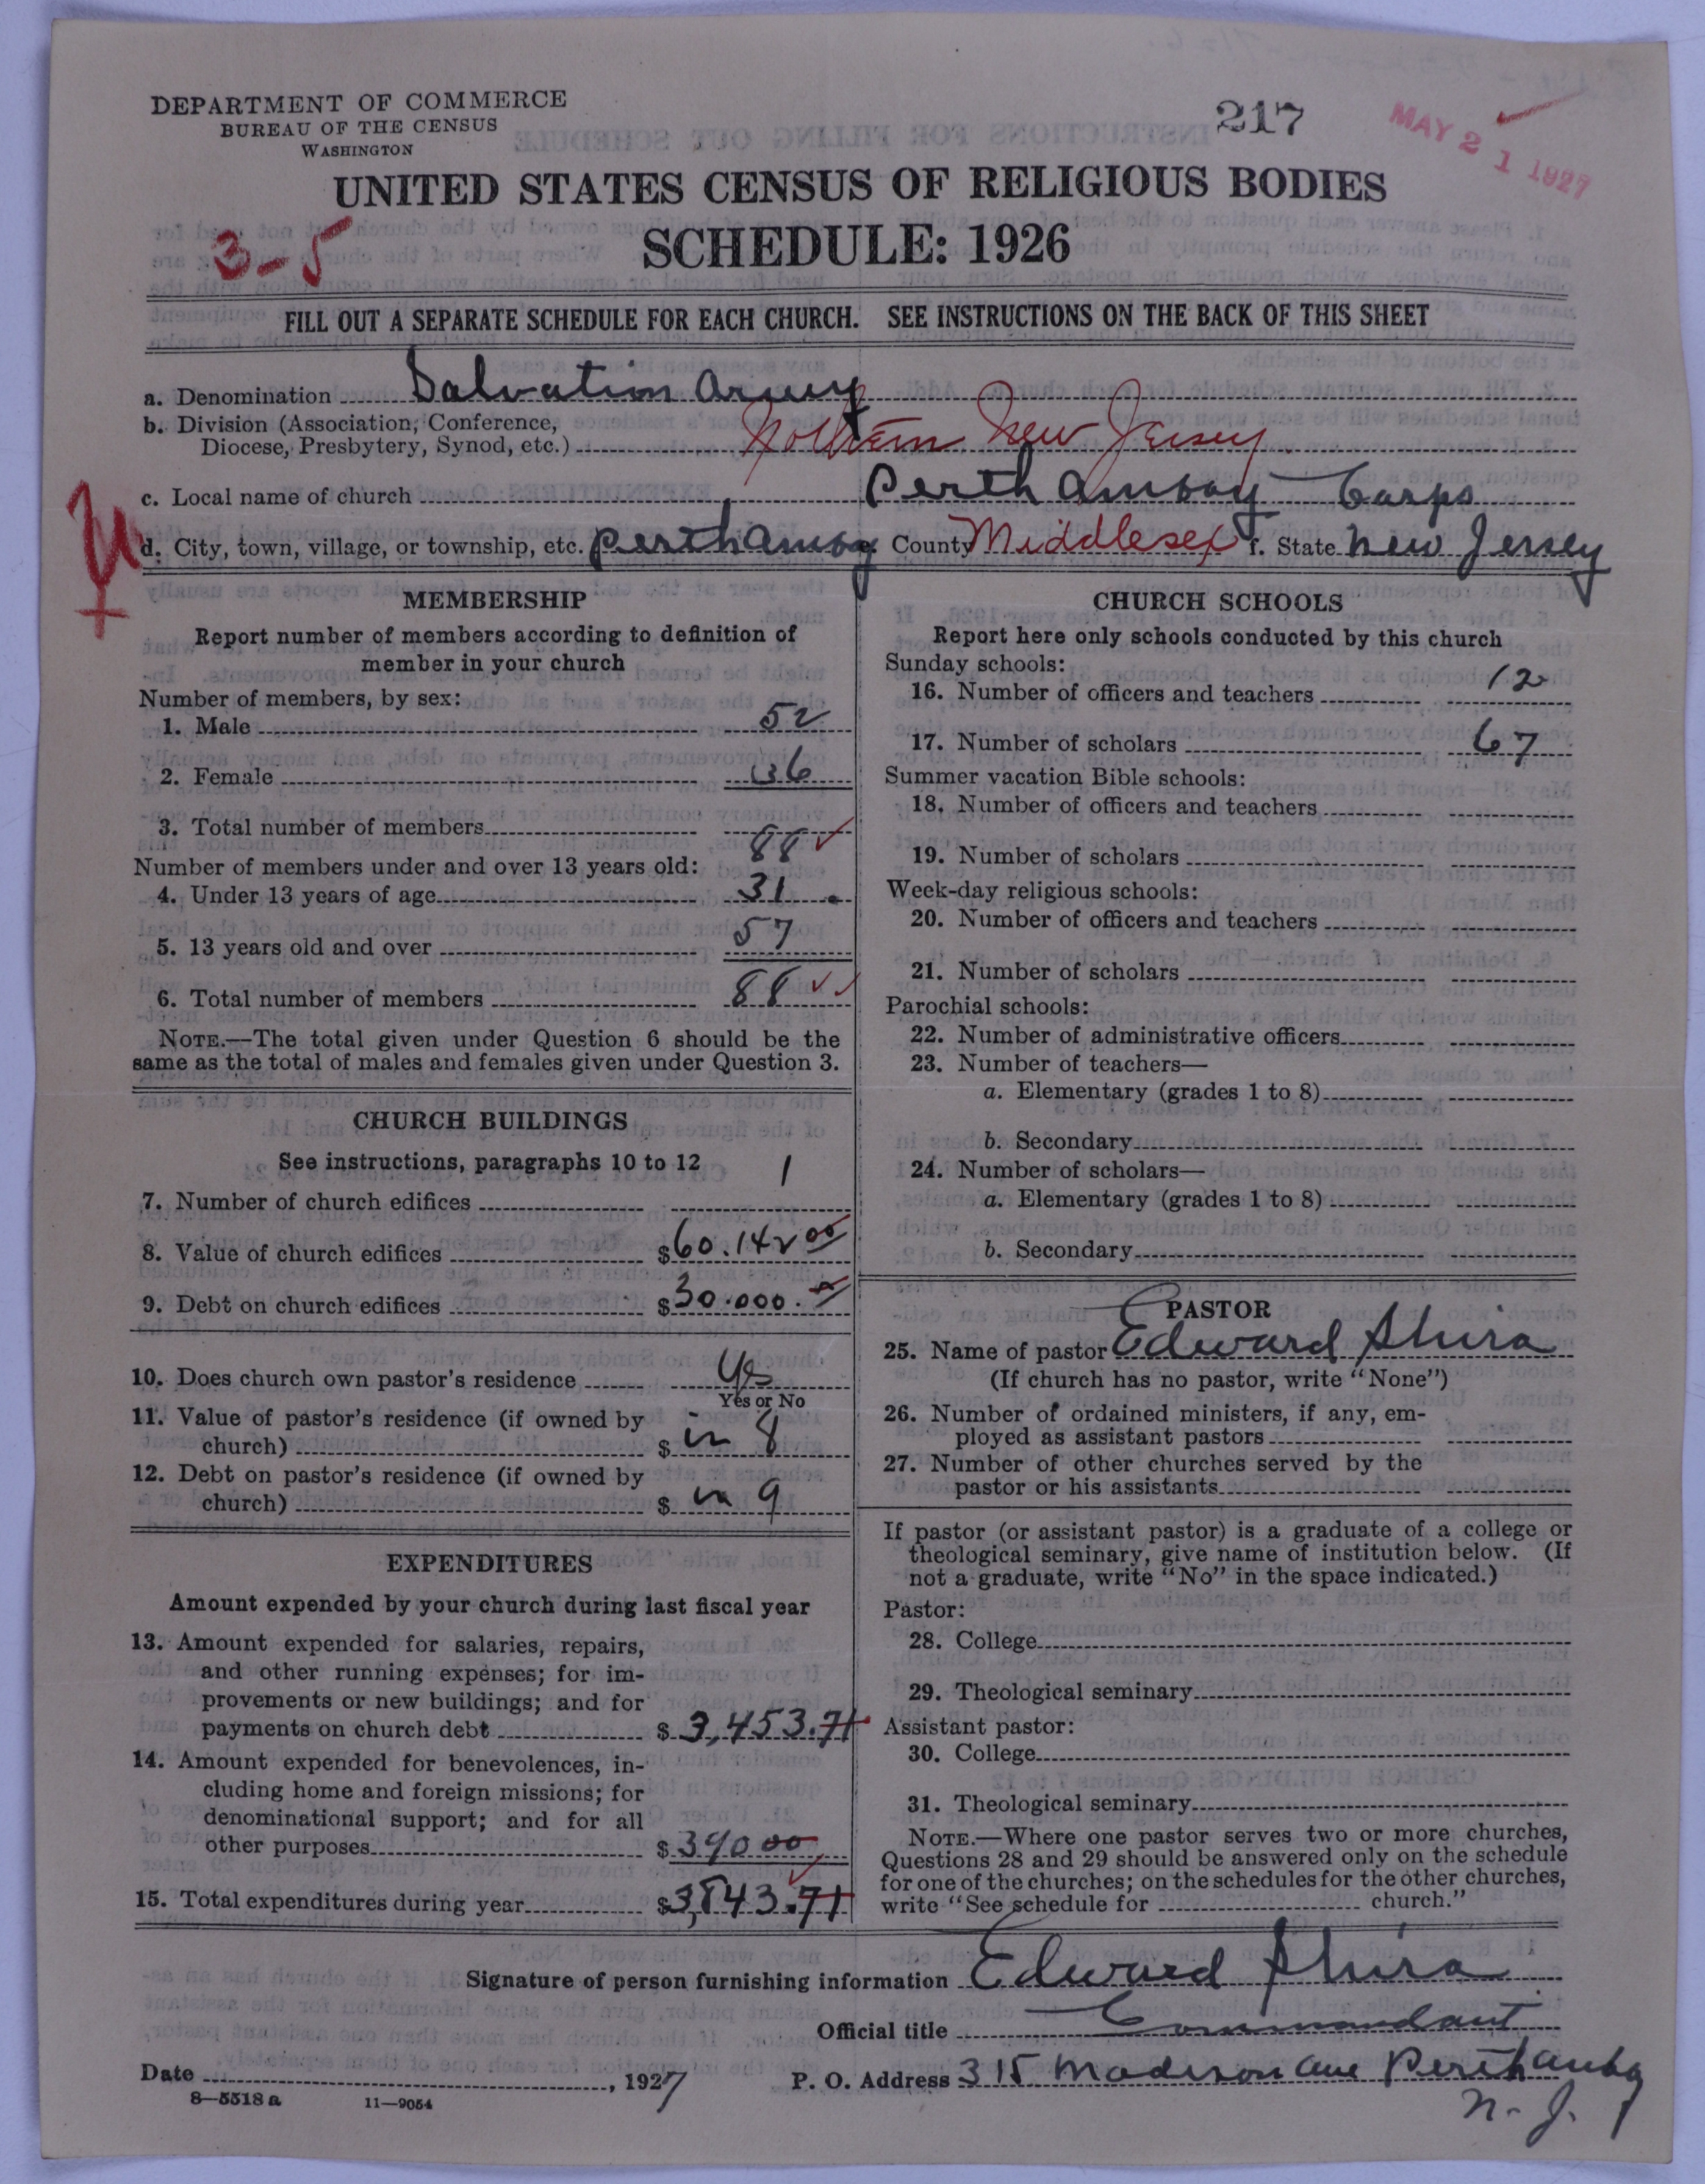 DEPARTMENT OF COMMERCE
BUREAU OF THE CENSUS
WASHINGTON
217
MAY 21 1927
UNITED STATES CENSUS OF RELIGIOUS BODIES
SCHEDULE: 1926
3-5
FILL OUT A SEPARATE SCHEDULE FOR EACH CHURCH. SEE INSTRUCTIONS ON THE BACK OF THIS SHEET
a. Denomination Salvation Army
b. Division (Association, Conference,
Diocese, Presbytery, Synod, etc.) Northern New Jersey
c. Local name of church Perth Amboy Corps
d. City, town, village, or township, etc. Perth Amboy e. County Middlesex f. State New Jersey
MEMBERSHIP
Report number of members according to definition of
member in your church
Number of members, by sex:
1. Male 52
2. Female 36
3. Total number of members 88
Number of members under and over 13 years old:
4. Under 13 years of age 31
5. 13 years old and over 57
6. Total number of members 88
NOTE.—The total given under Question 6 should be the
same as the total of males and females given under Question 3.
CHURCH BUILDINGS
See instructions, paragraphs 10 to 12
7. Number of church edifices 1
8. Value of church edifices $60.142 00
9. Debt on church edifices $30.000.
10. Does church own pastor's residence Yes
Yes or No
11. Value of pastor's residence (if owned by
church) $ in 8
12. Debt on pastor's residence (if owned by
church) $ in 9
EXPENDITURES
Amount expended by your church during last fiscal year
13. Amount expended for salaries, repairs,
and other running expenses; for im-
provements or new buildings; and for
payments on church debt $ 3,453.71
14. Amount expended for benevolences, in-
cluding home and foreign missions; for
denominational support; and for all
other purposes $ 390 00
15. Total expenditures during year $3,843.71
CHURCH SCHOOLS
Report here only schools conducted by this church
Sunday schools:
16. Number of officers and teachers 12
17. Number of scholars 67
Summer vacation Bible schools:
18. Number of officers and teachers
19. Number of scholars
Week-day religious schools:
20. Number of officers and teachers
21. Number of scholars
Parochial schools:
22. Number of administrative officers
23. Number of teachers—
a. Elementary (grades 1 to 8)
b. Secondary
24. Number of scholars—
a. Elementary (grades 1 to 8)
b. Secondary
PASTOR
25. Name of pastor Edward Shira
(If church has no pastor, write "None")
26. Number of ordained ministers, if any, em-
ployed as assistant pastors
27. Number of other churches served by the
pastor or his assistants
If pastor (or assistant pastor) is a graduate of a college or
theological seminary, give name of institution below. (If
not a graduate, write "No" in the space indicated.)
Pastor:
28. College
29. Theological seminary
Assistant pastor:
30. College
31. Theological seminary
NOTE.—Where one pastor serves two or more churches,
Questions 28 and 29 should be answered only on the schedule
for one of the churches; on the schedules for the other churches,
write "See schedule for church."
Signature of person furnishing information Edward Shira
Official title Commandant
Date , 1927
P. O. Address 315 Madison Ave Perth Amboy
N. J.
8—5518a 11—9054